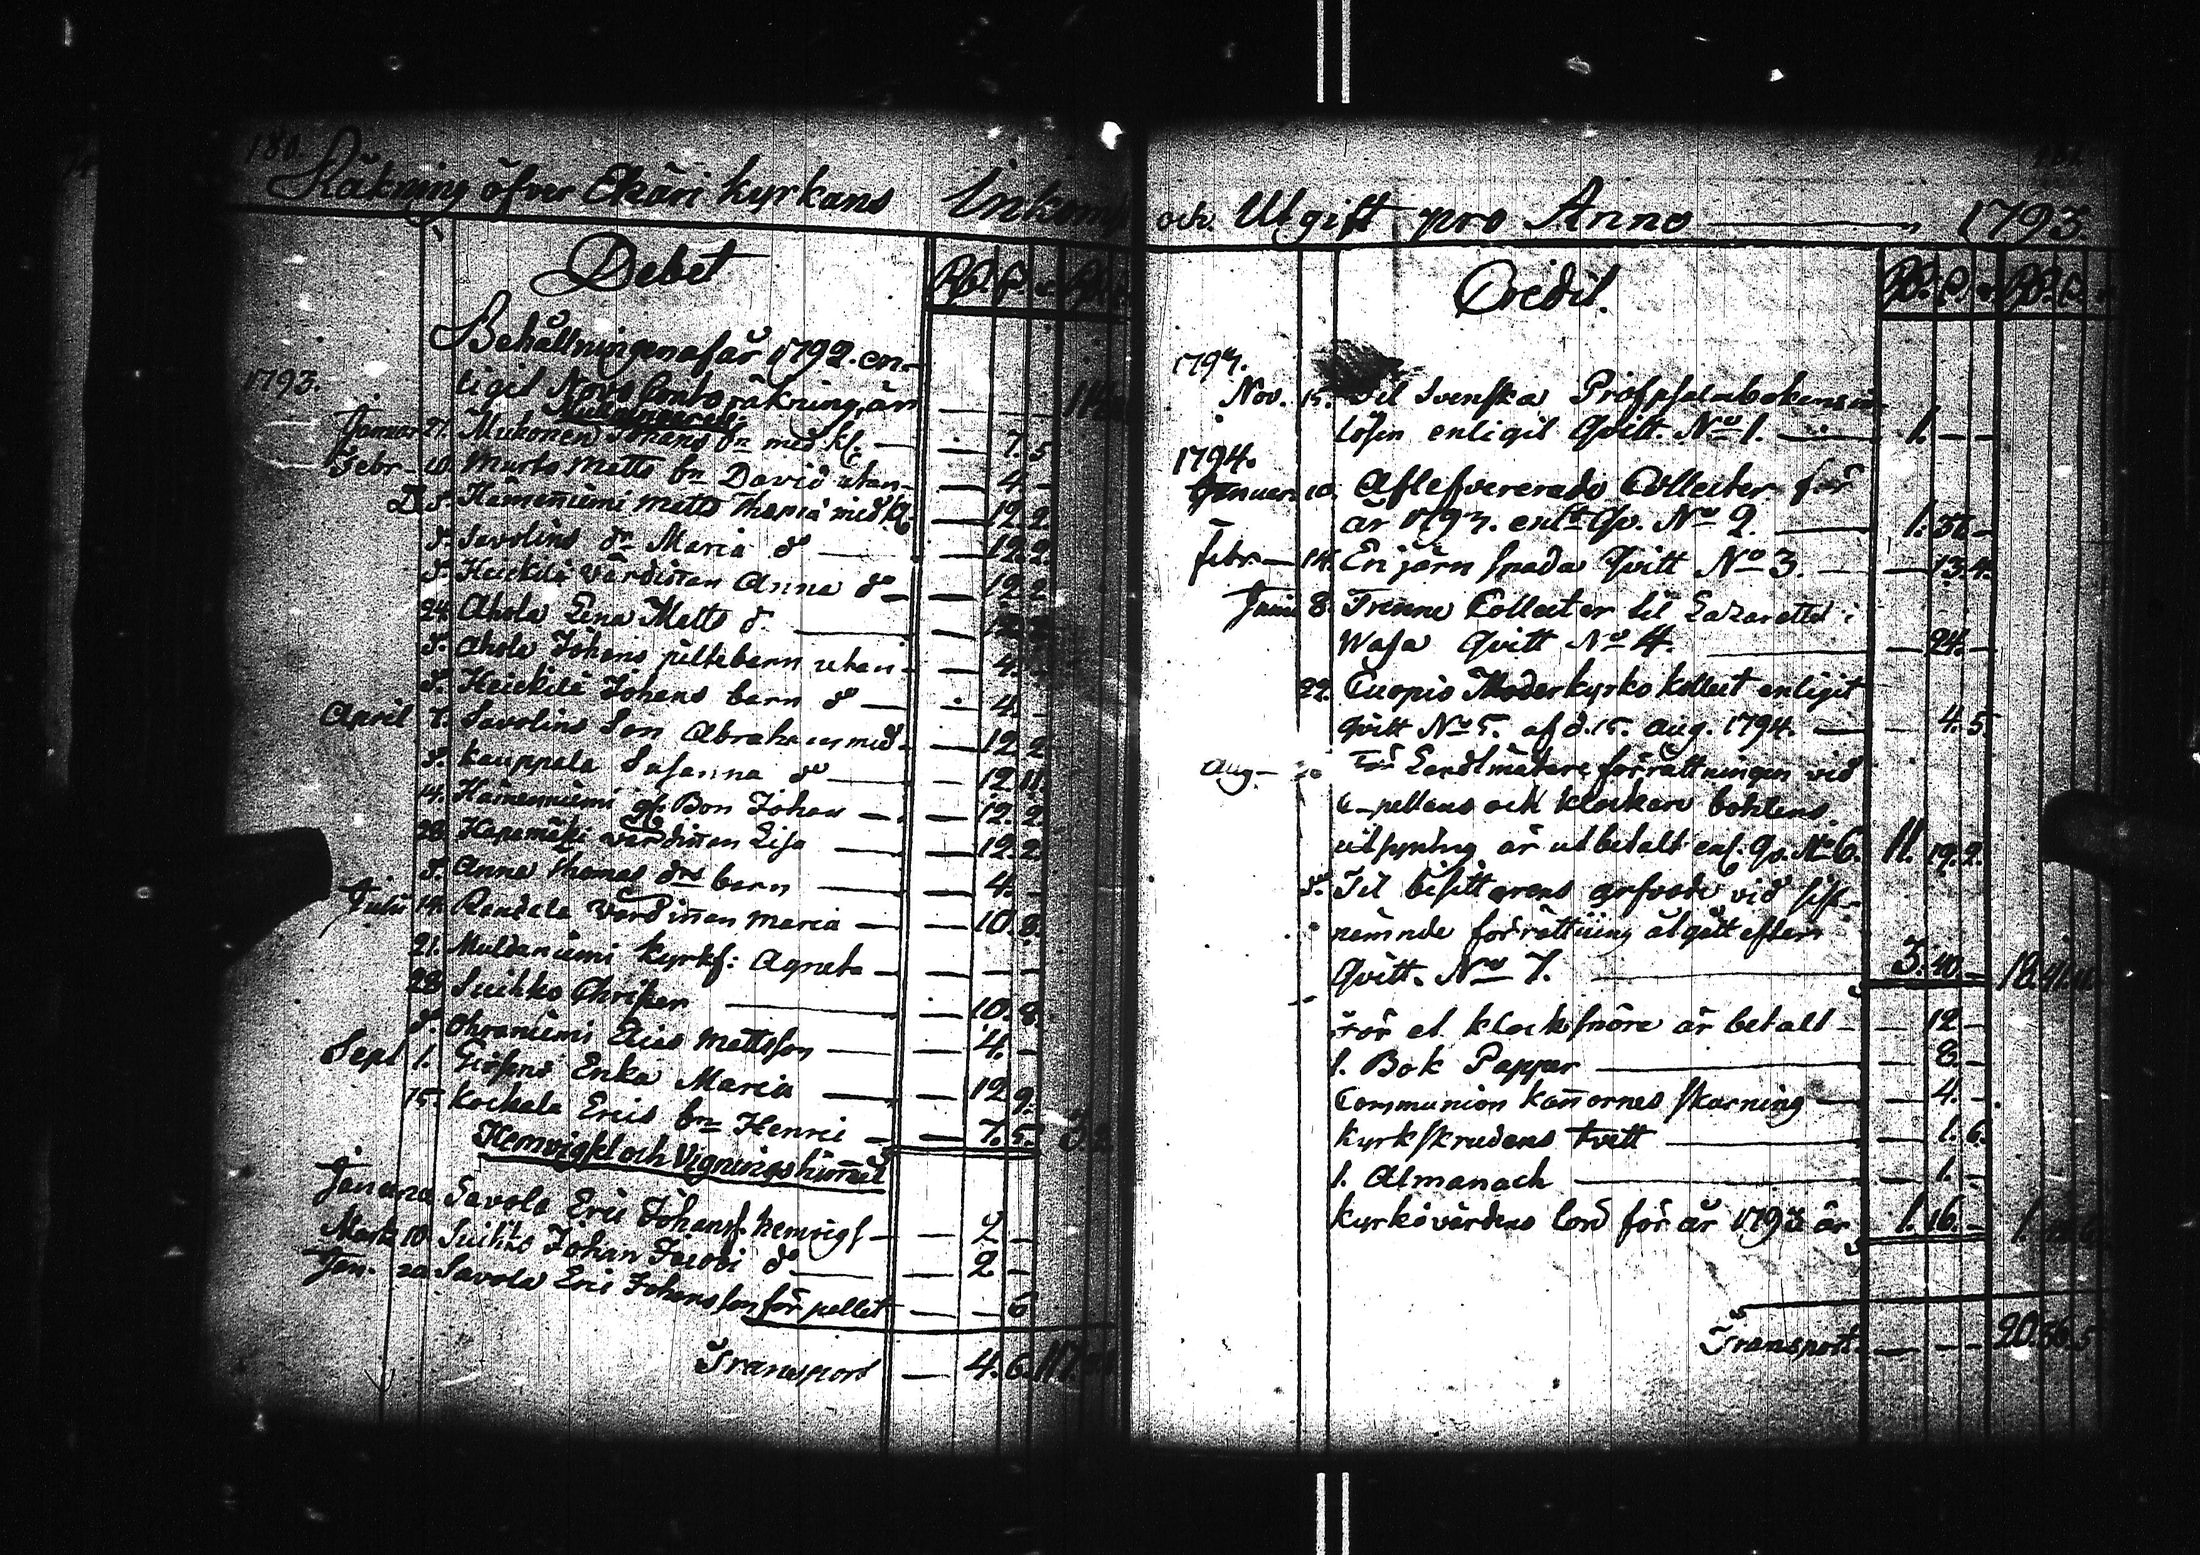 180.
Räkning öfver Etsäri kyrkans Inkomst
Debet
Behållningen af år 1792. en-
1793. ligit Novo Conto räkning, är
Januar 27. Mukonen Johans sn med kl. — 7. 5
Febr. 10. Murto Matts sn David utan — 4. —
D. d. Hämeniemi Matts Maria med kl. — 12. 2.
d. Savolins dr Maria do — 12. 2.
d. Heickilä värdinnan Anna do — 12. 2
24. Ahola Lena Matts d. — 12. 2
d. Ahola Johans piltebarn utan — 4. —
d. Heickilä Johans barn do — 4. —
April 7. Savolins Son Abraham med — 12. 2
d. Kauppala Susanna do — 12. 11.
14. Hämeniemi Bon Johan — 12. 2
28. Hapamäki värdinnan Lisa — 12. 2.
d. Anna Thomas drs barn — 4. —
Julii 14. Rendala Värdinnan Maria — 10. 8.
21. Muldaniemi kyrks: Agneta — — —
28 Suikko Christer — 10. 8.
d. Ohraniemi Elias Mattsson — 4. —
Sept 1. Giösens Enka Maria — 12 9.
15. Kockala Erics sn Henric — 7. 5.
Hemvigsel och Vignings himmel
Januar Savola Eric Johanss. hemvigs — 2 —
Marti 10 Suikko Johan Jacobi do — 2 —
Jan. Savola Eric Johansson för pellet — — 6
Transport — 4. 6. 117.
och Utgift pro Anno — 1793.
Credit.
1793.
Nov. 15. Til Svenska Profpsalmbokens in-
lösen enligit Qvitt. No 1. — 1. — —
1794.
Januari 10. Aflefvererade Collecter för
år 1793. enlt Qv. No 2. — 1. 36 —
Febr. — 14. En järn spada Qvitt No 3. — 13. 4.
Junii 8. Trenne Collecter til Lazarettet i
Wasa Qvitt No 4. — 24. —
22. Cuopio Moderkyrko kollect enligit
Qvitt No 5. af d. 15. Aug. 1794. — 4. 5
Aug. — För Landtmätare förrättningen vid
Capellans och klockare bohlens
utsyning är utbetalt enl. Qv. No 6. 11. 19. 2.
d. Til besittarens arfvode vid sist-
nämnde förrättning åtgått efter
Qvitt. No 7. — 3. 40. — 18. 41. 11
För et klocksnöre är betalt — 12 —
1. Bok Papper — 8. —
Communion kannornes skurning — 4. —
kyrkskrudens tvätt — 1. 6.
1. Almanach — 1. —
kyrkovärdens lön för år 1793 är 1. 16. —
Transport. — — — 20. 36. 5